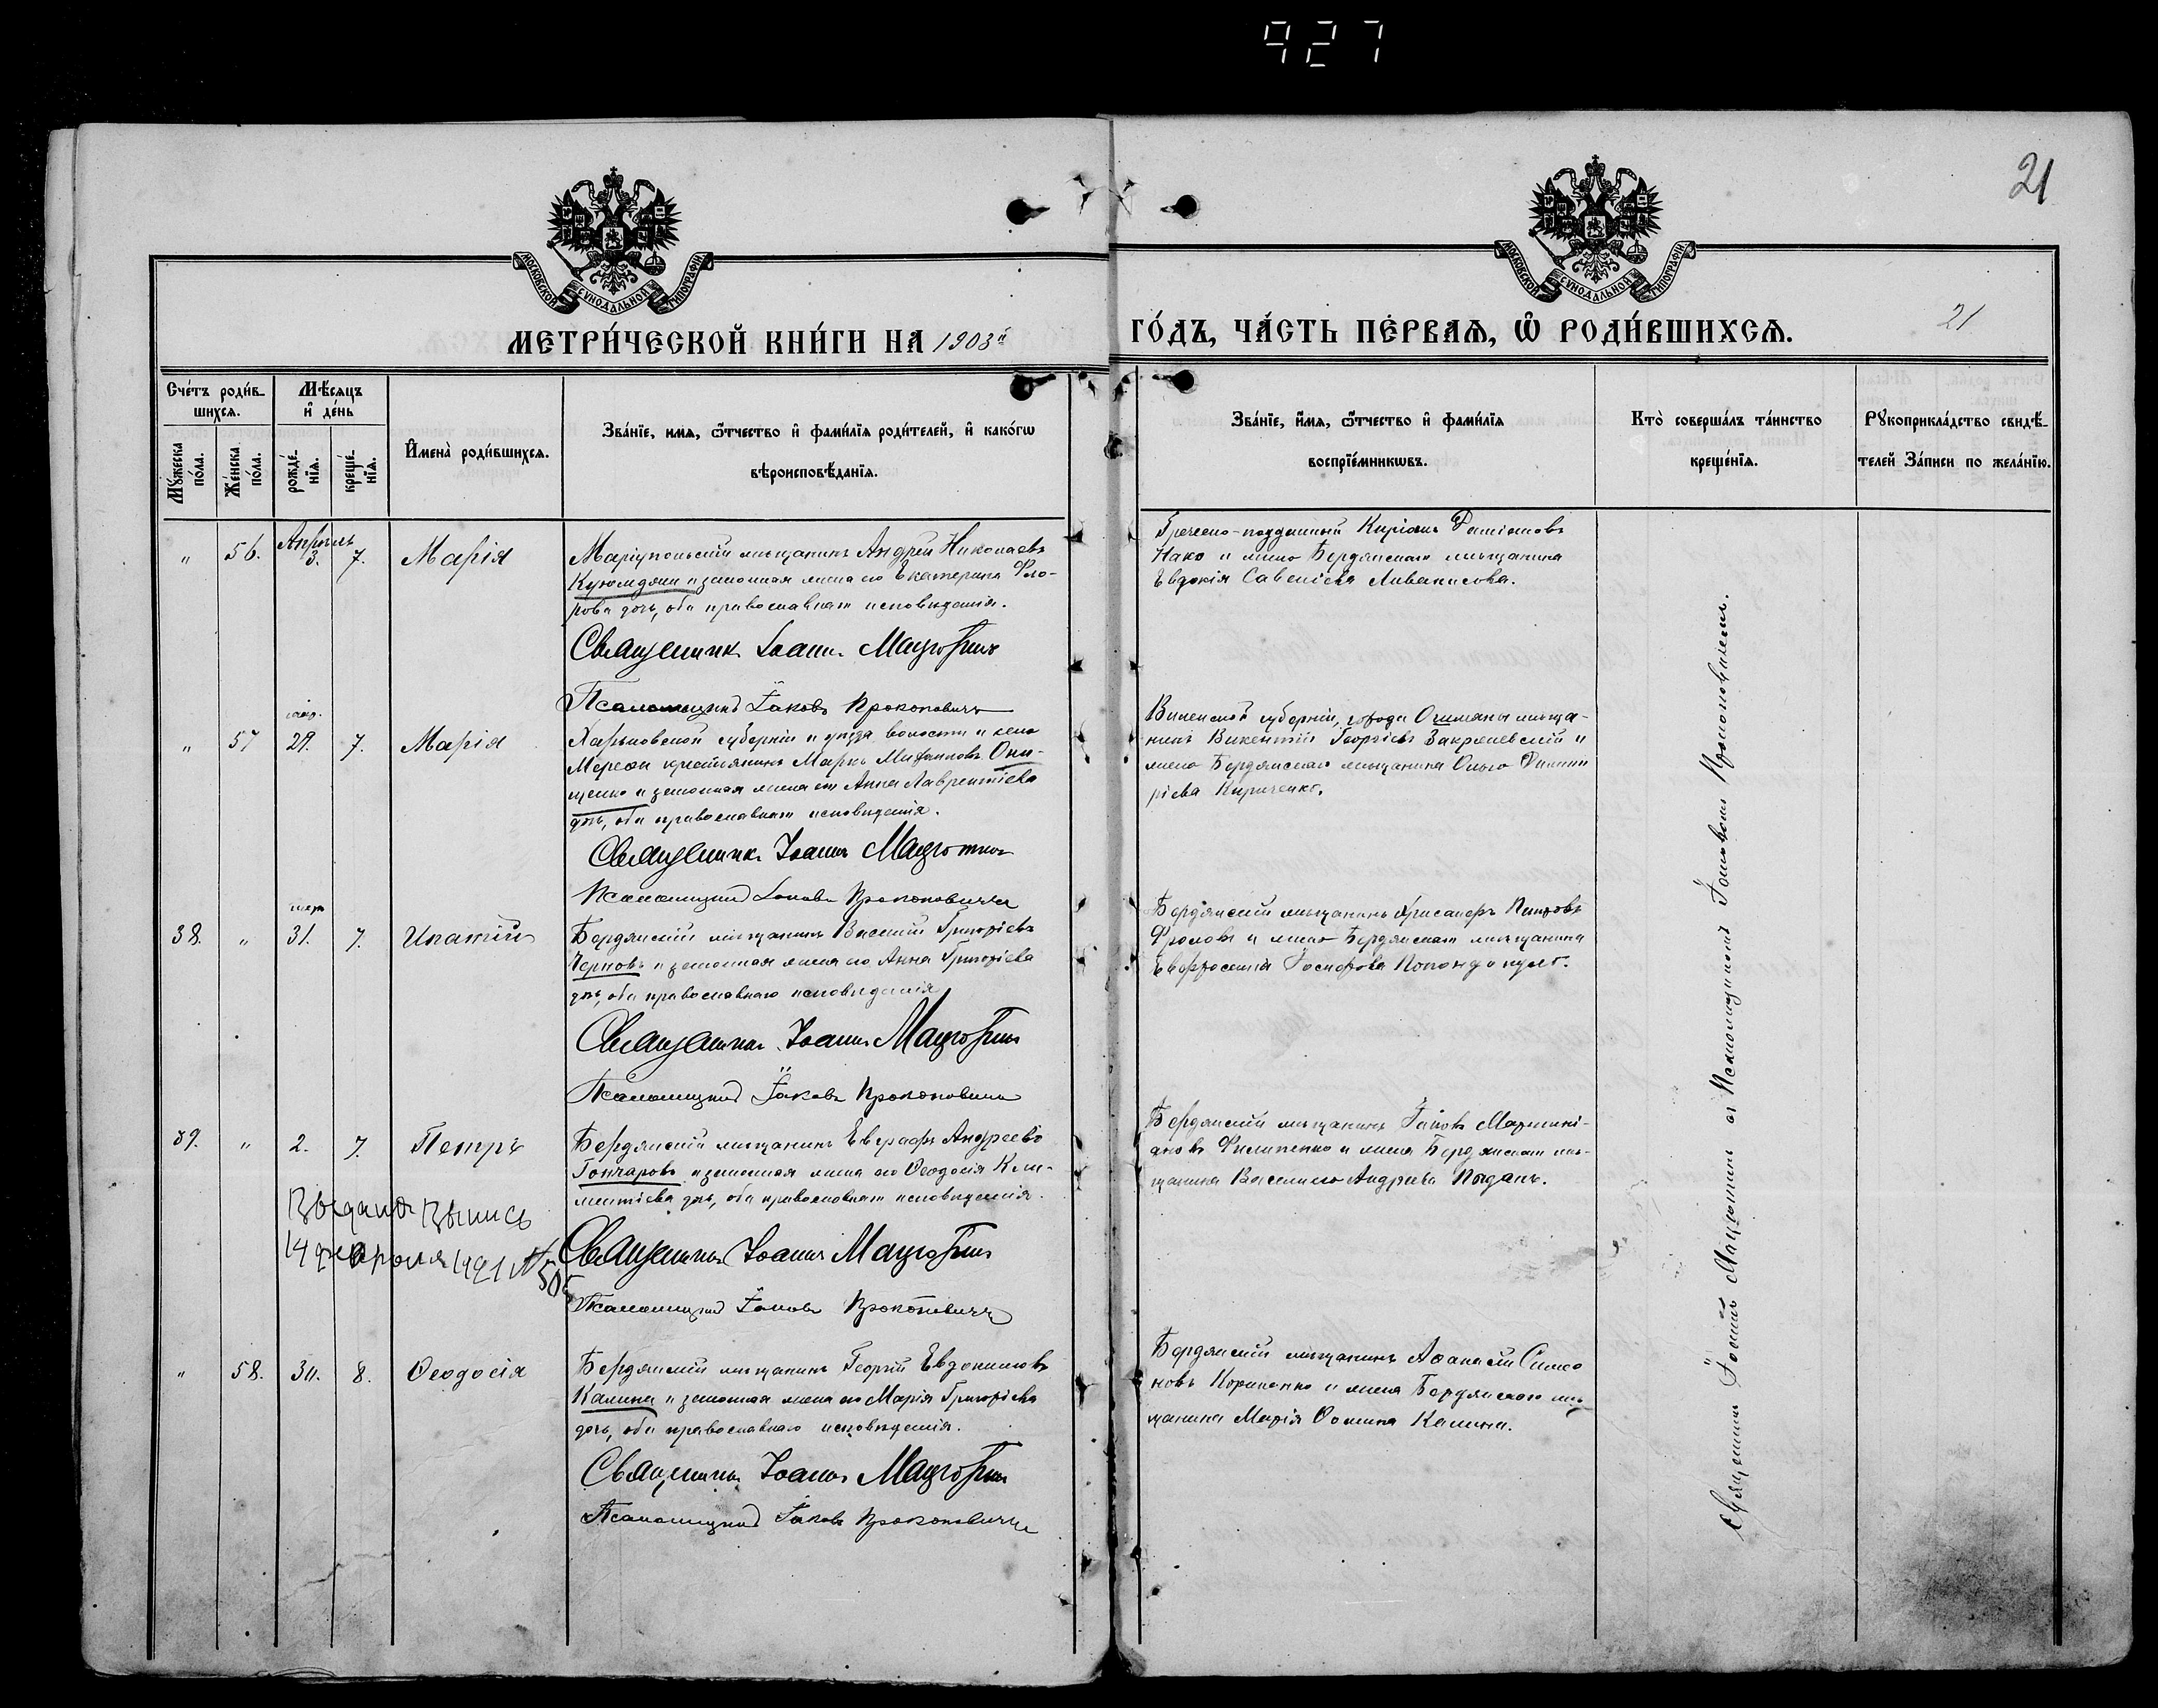 927
21
МОСКОВСКОЙ СѴНОДАЛЬНОЙ ТИПОГРАФІИ
МОСКОВСКОЙ СѴНОДАЛЬНОЙ ТИПОГРАФІИ
МЕТРИ́ЧЕСКОЙ КНИ́ГИ НА 1903й
ГО́ДЪ, ЧА́СТЬ ПЕ́РВАѦ, Ѡ҆ РОДИ́ВШИХСѦ.
21
Сче́тъ роди́в-
шихсѧ.
Мѣ́сѧцъ
и҆ де́нь
Мꙋ́жеска
по́ла.
Же́нска
по́ла.
рожде́-
нїѧ.
креще́-
нїѧ.
И҆мена̀ роди́вшихсѧ.
Зва́нїе, имѧ, ѻ҆́тчество и҆ фами́лїѧ роди́телей, и҆ како́гѡ
вѣроисповѣ́данїѧ.
Зва́нїе, и҆́мѧ, ѻ҆́тчество и҆ фами́лїѧ
воспрїе́мникѡвъ.
Кто̀ соверша́лъ та́инство
креще́нїѧ.
Рꙋкоприкла́дство свидѣ́-
телей За́писи по жела́нїю.
" 56. Апрѣль 3. 7. Марія
Маріупольскій мѣщанинъ Андрей Николаевъ
Куюмджи и законная жена его Екатерина Фло-
рова дочь, оба православнаго исповѣданія.
Священникъ Іоаннъ
Псаломщикъ Іаковъ Прокоповичъ
Греческо-подданный Киріакъ Даміановъ
Нако и жена Бердянскаго мѣщанина
Евдокія Савеліева
" 57 мар. 29. 7. Марія
Харьковской губерніи и уѣзда волости и села
Мерефы крестьянинъ Маркъ Они-
щенко и законная жена его Анна Лаврентіева
дочь, оба православнаго исповѣданія.
Священникъ Іоаннъ
Псаломщикъ Іаковъ Прокоповичъ
Виленской губерніи, города Ошмяны мѣща-
нинъ Викентій Георгіевъ Закржевскій и
жена Бердянскаго мѣщанина Ольга Димит
ріева Кириченко.
38. " март 31. 7. Ипатій
Бердянскій мѣщанинъ Василій Григорьевъ
Черновъ и законная жена его Анна Григоріева
дочь, оба православнаго исповѣданія
Священникъ Іоаннъ
Псаломщикъ Іаковъ Прокоповичъ
Бердянскій мѣщанинъ Хрисанфъ Петровъ
Фроловъ и жена Бердянскаго мѣщанина
Евфросинія
39. " 2. 7. Петръ
Бердянскій мѣщанинъ Евграфъ Андреевъ
Гончаровъ и законная жена его Ѳеодосія Кли-
ментіева дочь, оба православнаго исповѣданія.
Выдана Выпись
14 февраля 1921 №
505
Священникъ Іоаннъ
Псаломщикъ Іаковъ Прокоповичъ
Бердянскій мѣщанинъ Іаковъ Мартині-
ановъ Филипенко и жена Бердянскаго мѣ-
щанина Василиса Андреева
" 58. 30. 8. Ѳеодосія
Бердянскій мѣщанинъ Георгій Евдокимовъ
Калина и законная жена его Марія Григоріева
дочь, оба православнаго исповѣданія.
Священникъ Іоаннъ
Псаломщикъ Іаковъ Прокоповичъ
Бердянскій мѣщанинъ Аѳанасій Симео
новъ и жена Бердянскаго мѣ-
щанина Марія Ѳомина Калина.
Священникъ съ Псаломщикомъ Іаковомъ Прокоповичемъ.